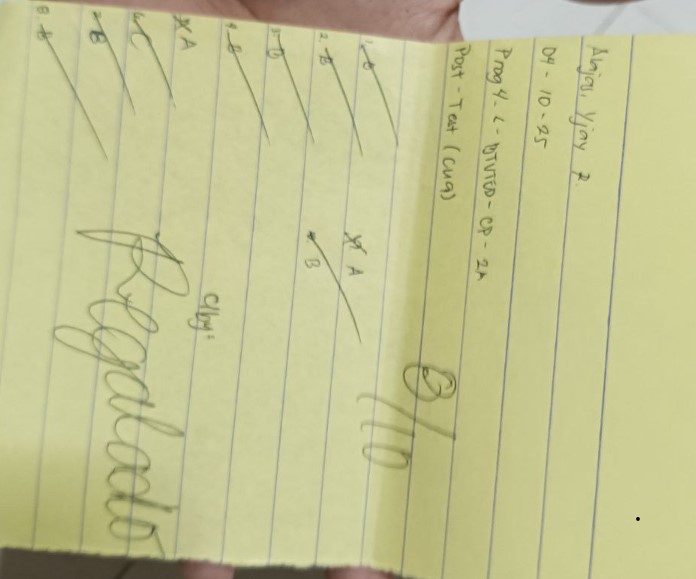 Alajas, Yjay P.
04-10-25
Prog 4-L-BTVTED-CP-2A
Post-Test (Cuq)
8/10
1. B
2. B
3. D
4. B
A
6. C
7. B
8. B
A
B
C/by:
Regalado